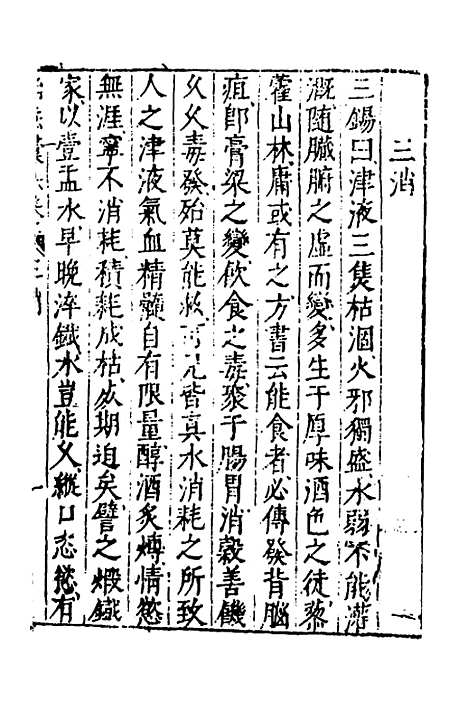 三消
三錫曰津液三隻枯涸火邪獨盛水弱不能灌
溉隨臟腑之虛而變多生于厚味酒色之徒藜
藿山林庸或有之方書云能食者必傳發背腦
疽郎膏粱之變飲食之毒聚于腸胃消穀善饑
久久毒發殆莫能救 皆真水消耗之所致
人之津液氣血精髓自有限量醇酒炙煿情慾
無涯寧不消耗積耗成枯死期迫矣譬之煅鐵
家以壹盂水早晚淬鐵水豈能久縱口恣慾有
三消